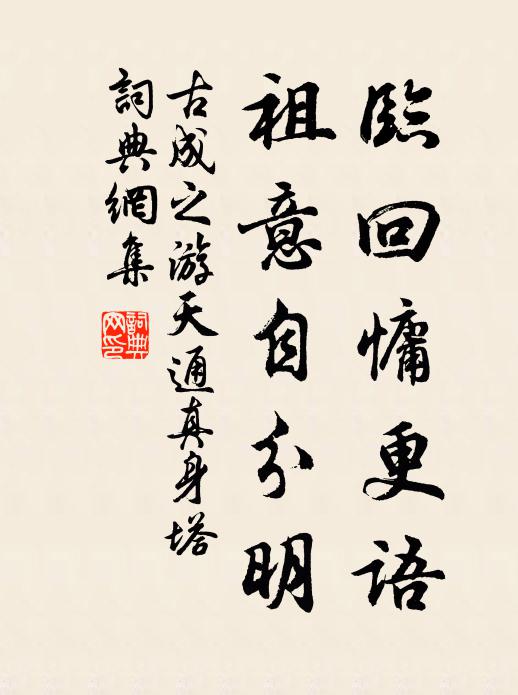 臨回慵更語
祖意自分明
古成之游天通真身塔
詞典網集
詞典網印